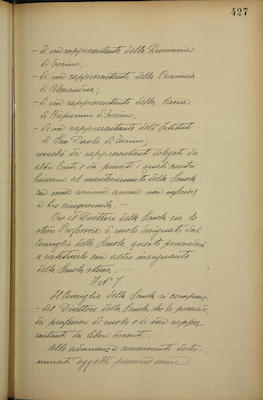 427
- di un rappresentante della Provincia
di Torino;
- di un rappresentante della Provincia
di Alessandria;
- di un rappresentante della Cassa
di Risparmio di Torino;
- di un rappresentante dell'Istituto
di San Paolo di Torino,
nonchè dei rappresentanti delegati da
altri Enti e da privati i quali contri-
buiscano al mantenimento della Scuola
con una somma annua non inferiore
a lire cinquemila. -
Ove il Direttore della Scuola sia lo
stesso Professore di ruolo designato dal
Consiglio della Scuola, questo provvederà
a sostituirlo con altro insegnante
della Scuola stessa. -
Art° 7.
Il Consiglio della Scuola si compone
- del Direttore della Scuola, che lo presiede,
dei professori di ruolo e di due rappre-
sentanti dei liberi docenti. -
Alle adunanze concernenti deter-
minati oggetti possono essere